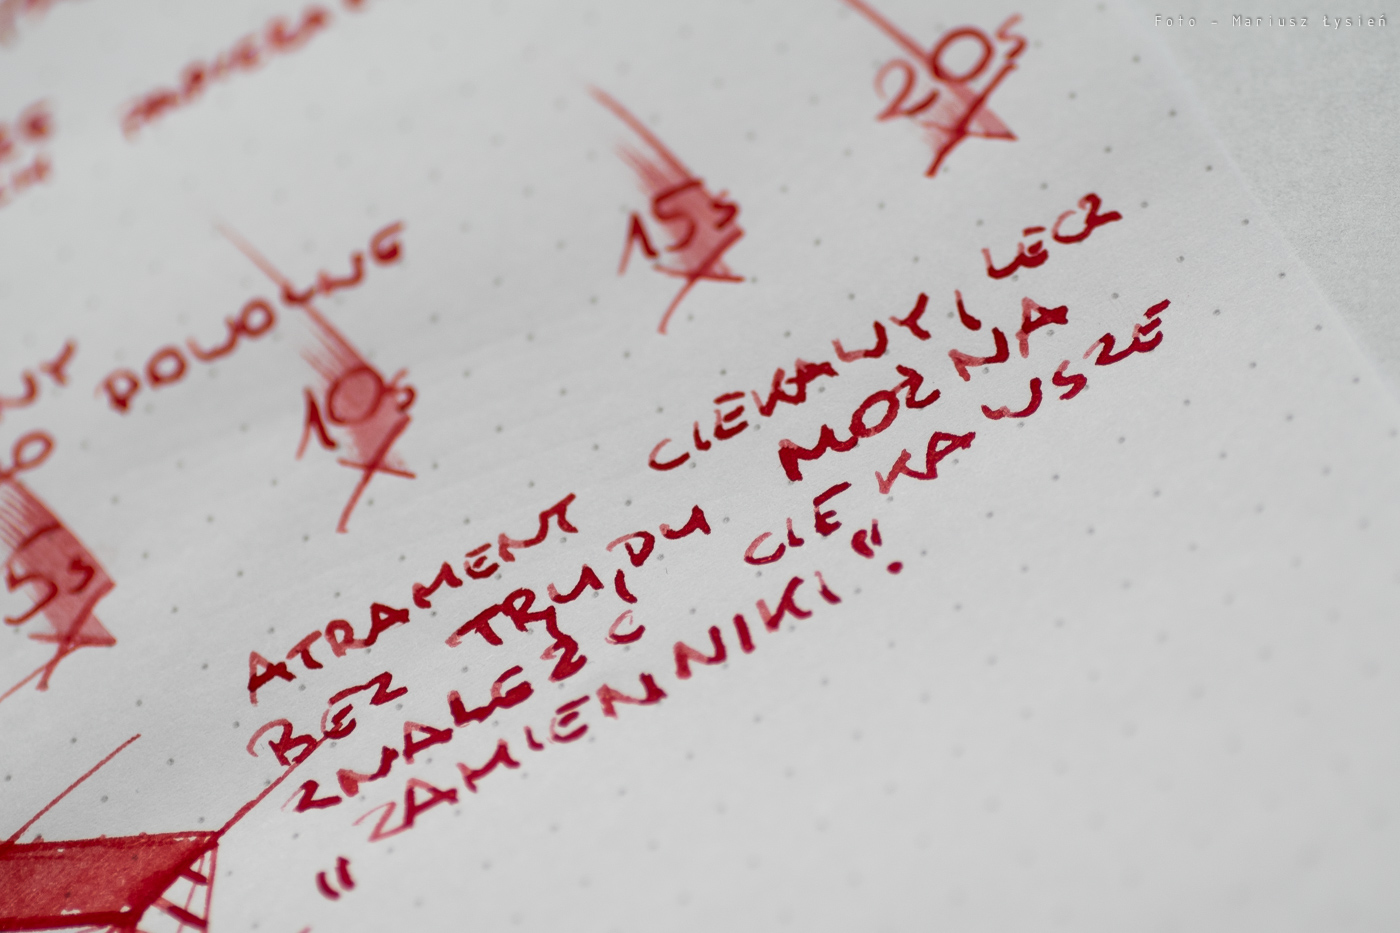 Foto - Mariusz Łysień
20s
15s
POWOLNE
10s
5s
ATRAMENT CIEKAWY, LECZ
BEZ TRUDU MOŻNA
ZNALEŹĆ CIEKAWSZE
"ZAMIENNIKI".